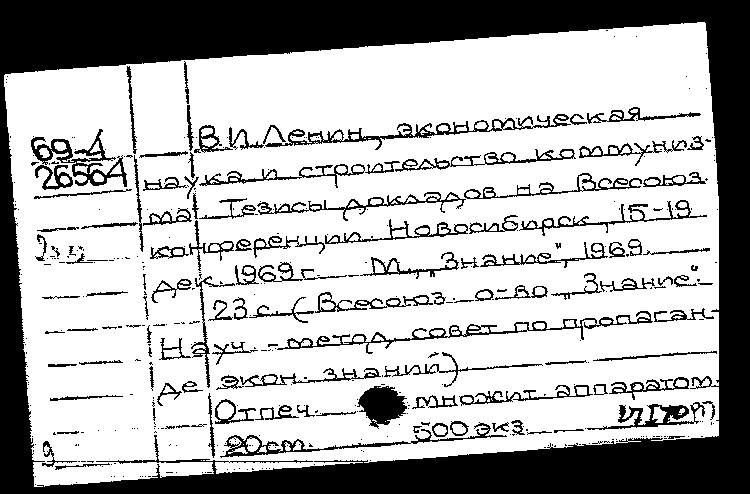 69-4
26564
В.И. Ленин, экономическая
наука и строительство коммуниз-
ма. Тезисы докладов на Всесоюз.
конференции. Новосибирск, 15-19
дек. 1969 г. М., „Знание", 1969.
23 с. (Всесоюз. о-во „Знание".
Науч.-метод. совет по пропаган-
де экон. знаний)
Отпеч. множит. аппаратом.
20 см. 500 экз.
9